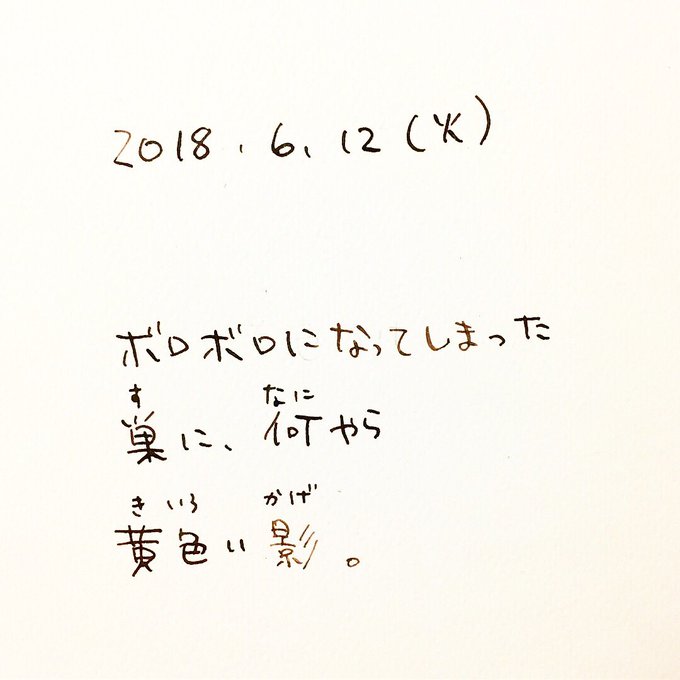 2018.6.12(火)
ボロボロになってしまった
す なに
巣に、何やら
きいろ かげ
黄色い影。